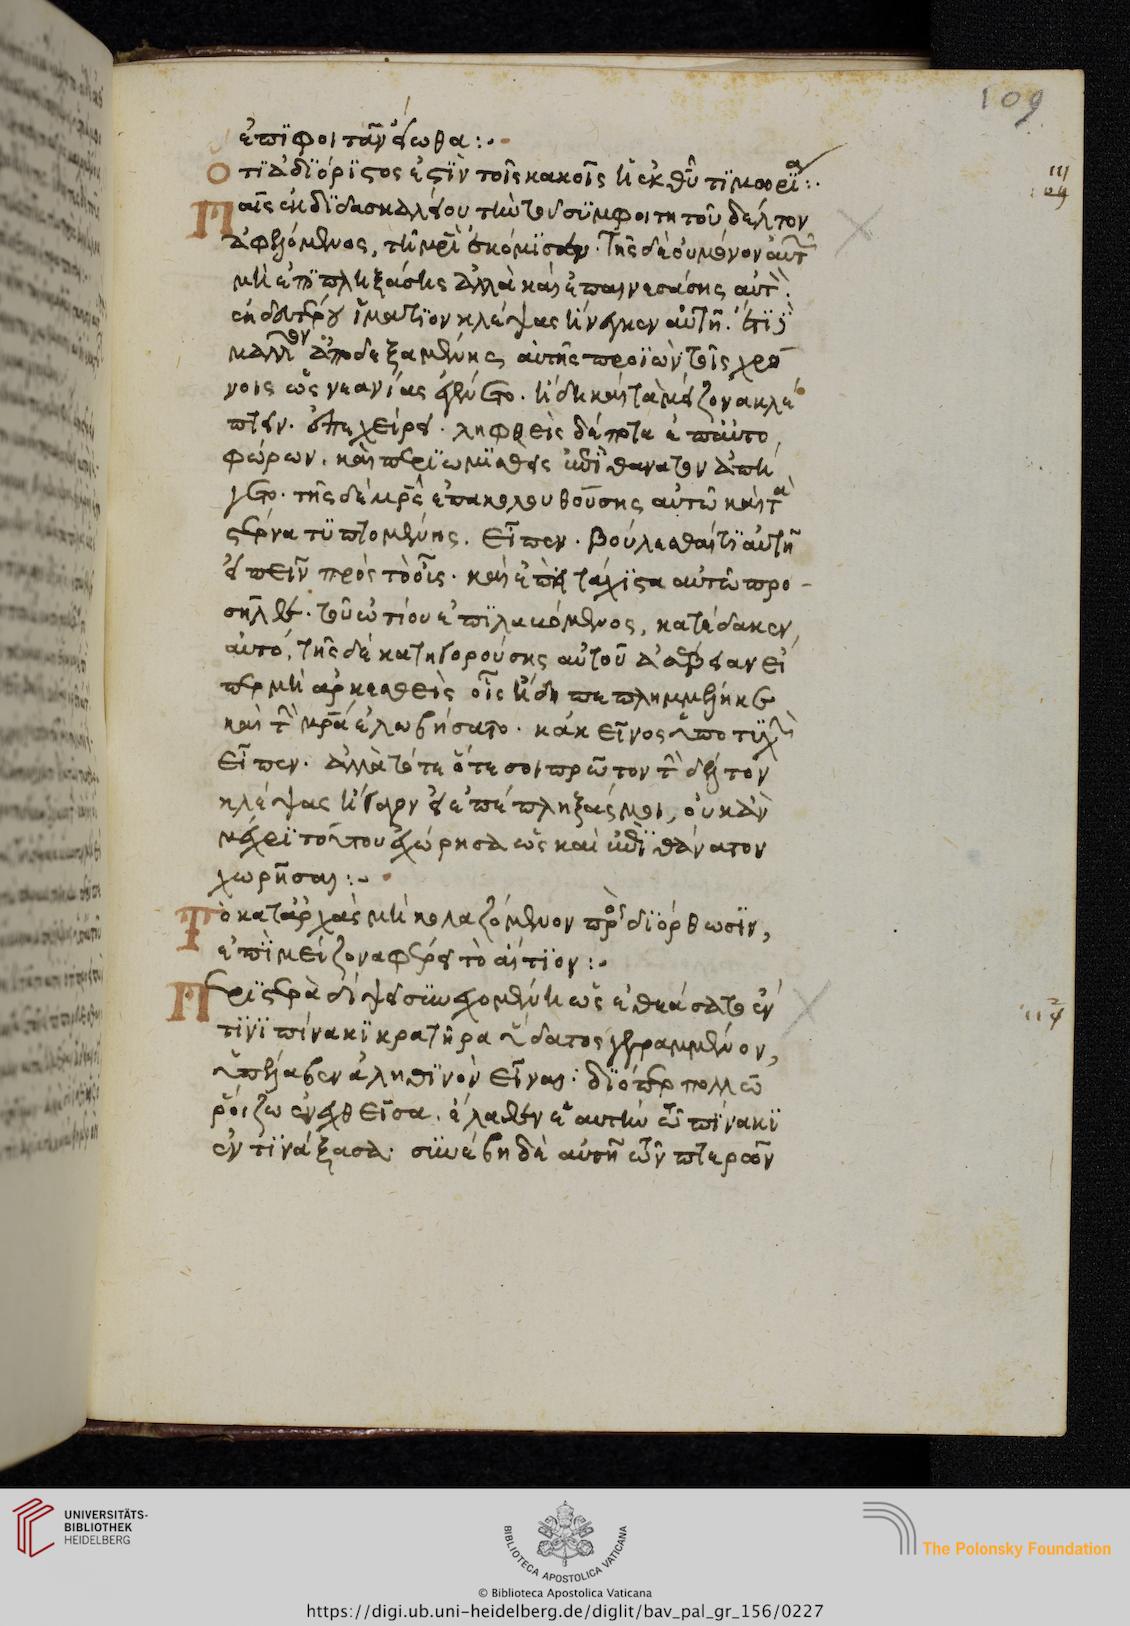 109
ἐπιφοιτᾶν εἴωθα :
Ὅτι ἀδιόριστος ἐστὶν τοῖς κακοῖς ἡ ἐκ θεοῦ τιμωρία :
Παῖς ἐκ διδασκαλείου τὴν τοῦ συμφοιτητοῦ δέλτον
ἀφελόμενος, τῇ μητρὶ ἐκόμισεν. τῆς δὲ οὐ μόνον αὐτῷ
μὴ ἐπιπληξάσης ἀλλὰ καὶ ἐπαινεσάσης αὐτὸν
ἐκ δευτέρου ἱμάτιον κλέψας ἤνεγκεν αὐτῇ. ἔτι
μᾶλλον ἀποδεξαμένης αὐτῆς προϊὼν τοῖς χρό
νοις ὡς νεανίας ἐγένετο. ἤδη καὶ τὰ μείζονα κλέ
πτειν. ἐπεχείρει. ληφθεὶς δέ ποτε ἐπ' αὐτο
φώρων. καὶ
ἐπὶ θάνατον ἀπή
γετο. τῆς δὲ μητρὸς ἐπακολουθούσης αὐτῷ καὶ τὰ
στέρνα τυπτομένης. εἶπεν. βούλεσθαί τι αὐτῇ
εἰπεῖν πρὸς τὸ οὖς. καὶ ἐπεὶ τάχιστα αὐτῷ προ-
σῆλθε. τοῦ ὠτίου ἐπιλαβόμενος, κατέδακεν
αὐτό. τῆς δὲ κατηγορούσης αὐτοῦ δυσσέβειαν εἴ
περ μὴ ἀρκεσθεὶς οἷς ἤδη πεπλημμέληκε
καὶ τὴν μητέρα ἐλωβήσατο. κἀκεῖνος ὑποτυχὼν
εἶπεν. ἀλλὰ τότε ὅτε σοι πρῶτον τὴν δέλτον
κλέψας ἤγαγον εἰ ἐπέπληξάς μοι, οὐκ ἂν
μέχρι τούτου ἐχώρησα ὡς καὶ ἐπὶ θάνατον
χωρῆσαι :
Τὸ κατ' ἀρχὰς μὴ κολαζόμενον πρὸς διόρθωσιν,
ἐπὶ μείζονα φέρει τὸ αἴτιον :
Περιστερὰ δίψει συνεχομένη ὡς ἐθεάσατο ἐν
τινι πίνακι κρατῆρα ὕδατος γεγραμμένον,
ὑπέλαβεν ἀληθινὸν εἶναι. διόπερ πολλῷ
ῥοίζω ἐνεχθεῖσα. ἔλαθεν ἑαυτὴν τῷ πίνακι
ἐντινάξασα. συνέβη δὲ αὐτῇ τῶν πτερῶν
UNIVERSITÄTS-
BIBLIOTHEK
HEIDELBERG
BIBLIOTECA APOSTOLICA VATICANA
The Polonsky Foundation
© Biblioteca Apostolica Vaticana
https://digi.ub.uni-heidelberg.de/diglit/bav_pal_gr_156/0227